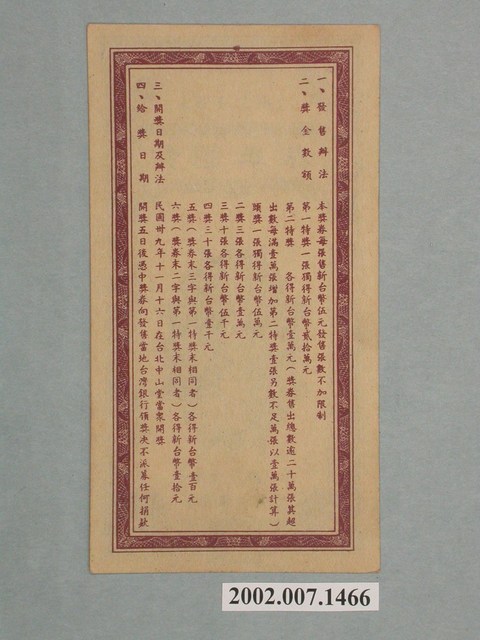 一、發售辦法　本獎券每張售新台幣伍元發售張數不加限制
二、獎金數額　第一特獎一張獨得新台幣貳拾萬元
第二特獎　各得新台幣壹萬元（獎券售出總數逾二十萬張其超
出數每滿壹萬張增加第二特獎壹張另數不足萬張以壹萬張計算）
頭獎一張獨得新台幣伍萬元
二獎三張各得新台幣壹萬元
三獎十張各得新台幣伍千元
四獎三十張各得新台幣壹千元
五獎（獎券末三字與第一特獎末相同者）各得新台幣壹百元
六獎（獎券末二字與第一特獎末相同者）各得新台幣壹拾元
三、開獎日期及辦法　民國卅九年十一月十六日在台北中山堂當衆開獎
四、給獎日期　開獎五日後憑中獎券向發售當地台灣銀行領獎決不派募任何捐款
2002.007.1466